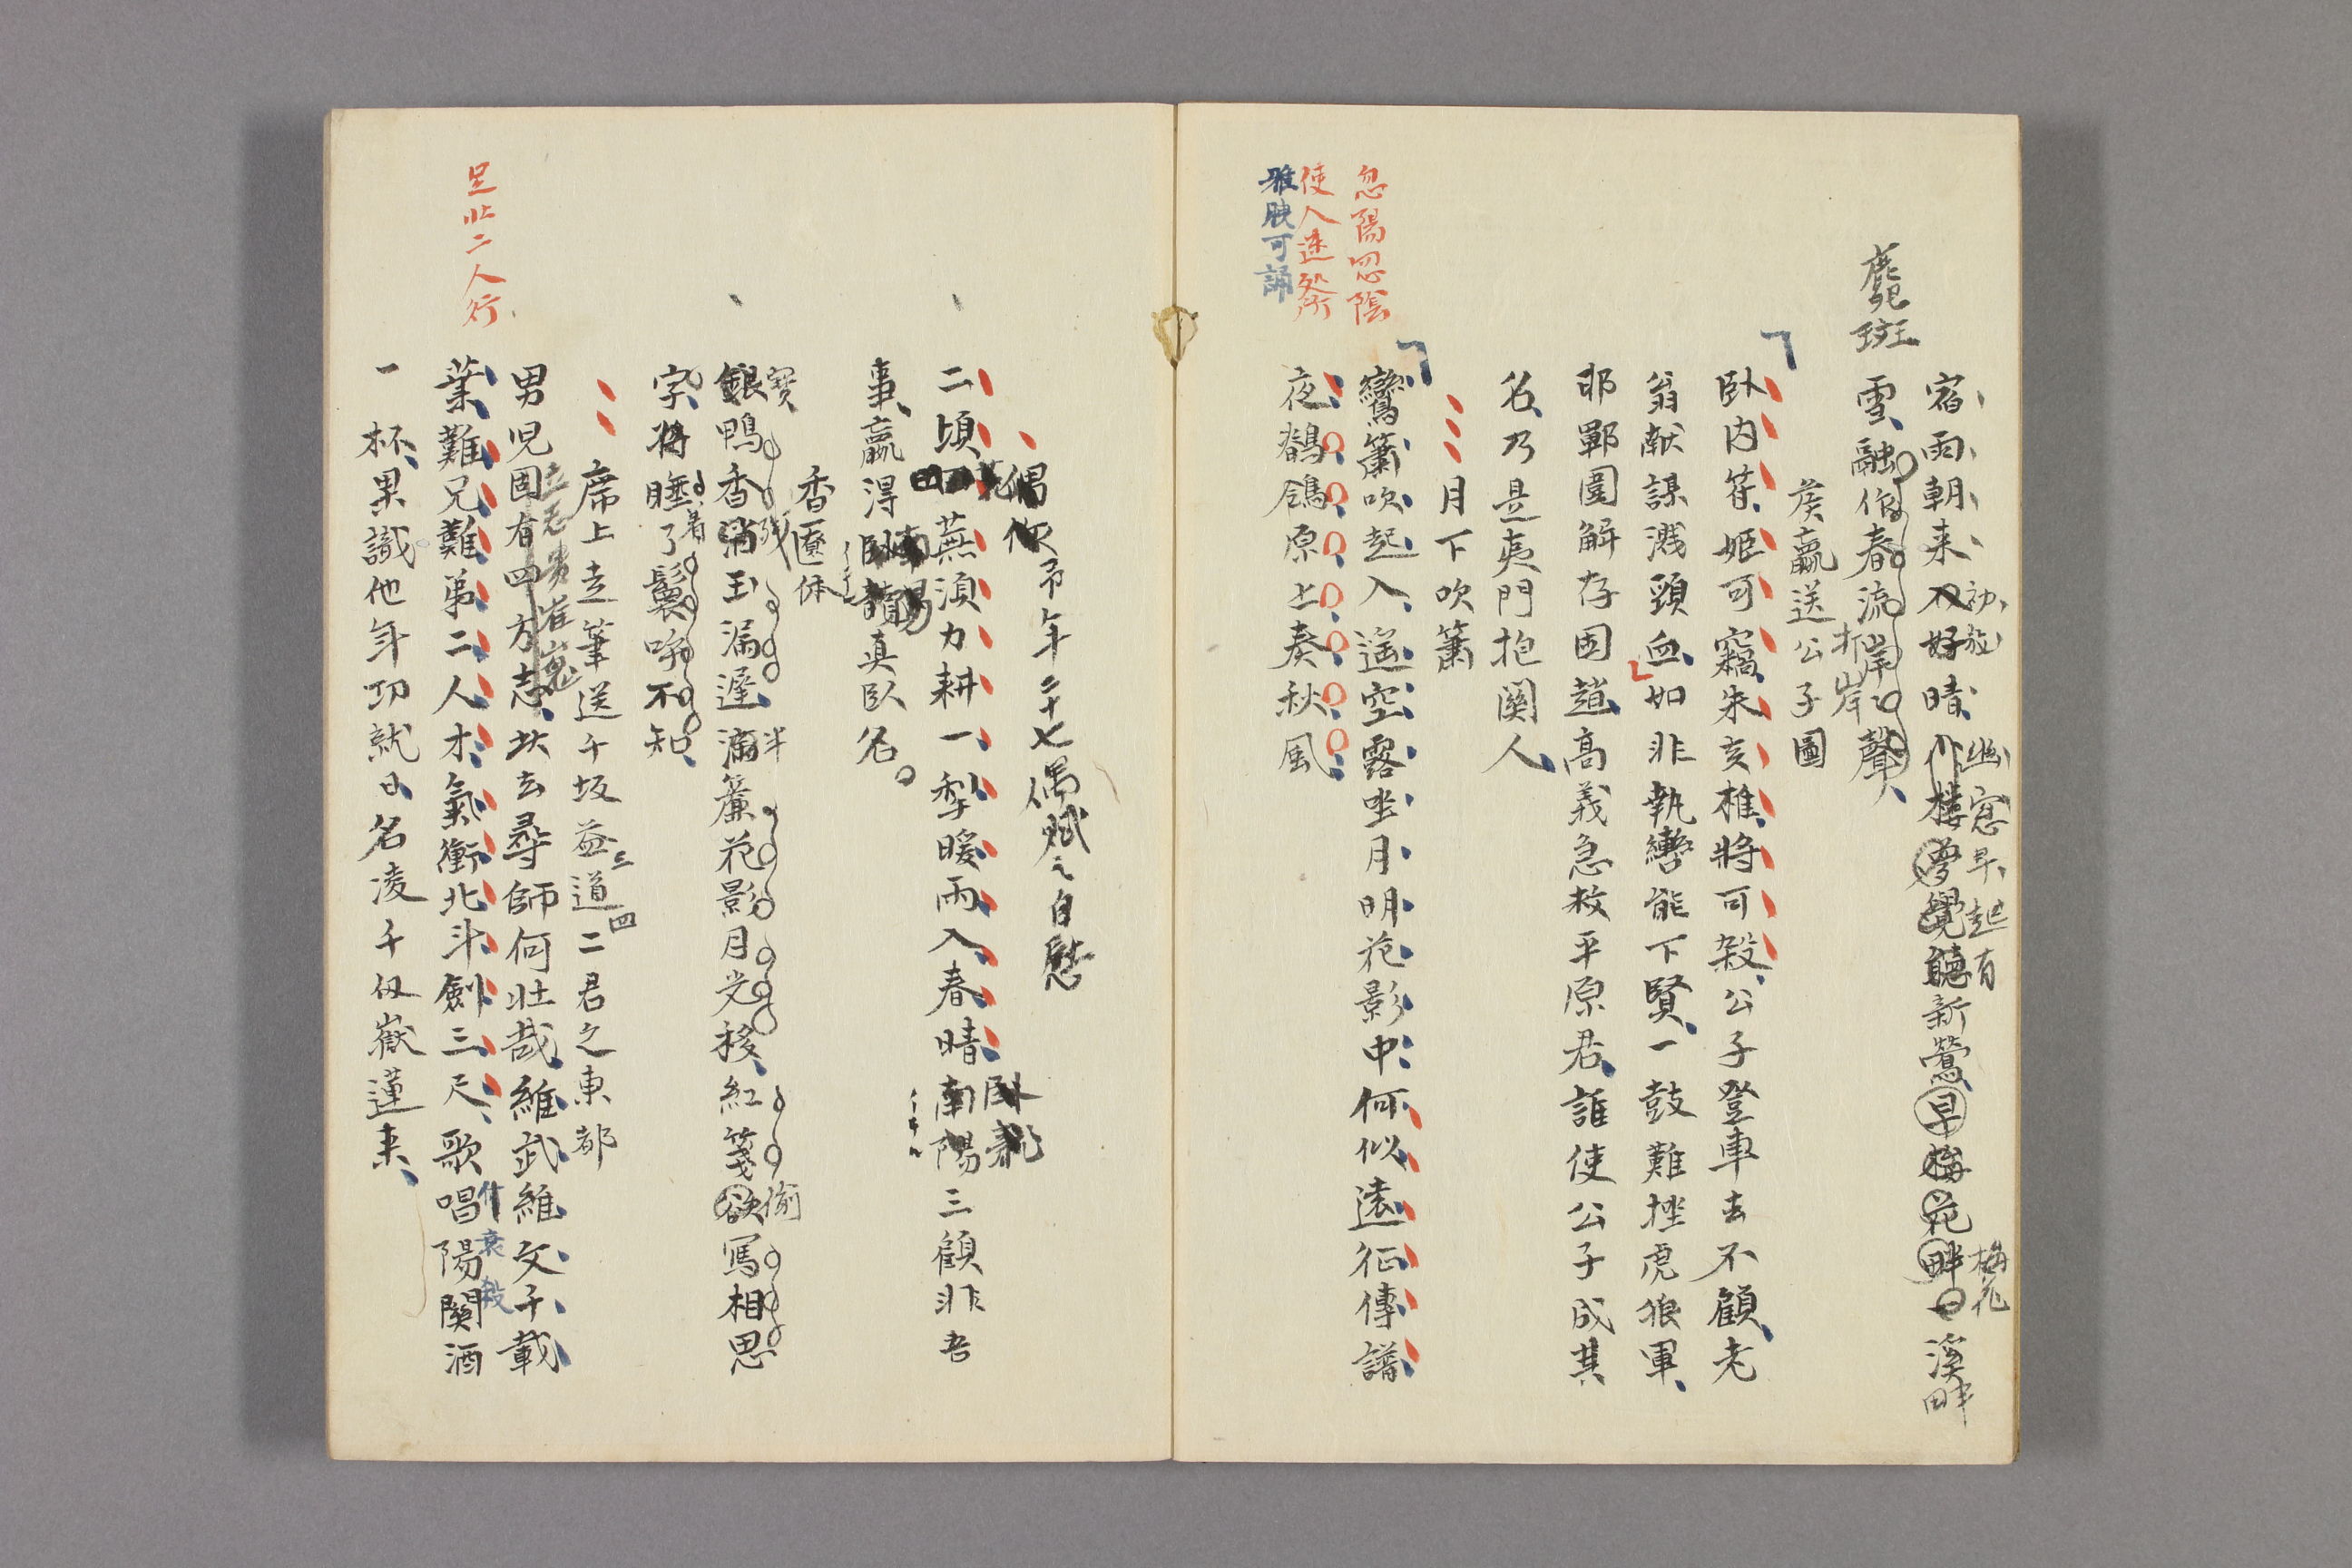 宿雨朝来初放晴幽窓早起有新鶯梅花溪畔
雪融作春流岸聲
打岸
麑斑
侯嬴送公子圖
臥内符姫可竊朱亥椎將可殺公子登車去不顧老
翁献謀濺頸血如非執轡能下賢一鼓難挫虎狼軍
邯鄲圍解存困趙高義急救平原君誰使公子成其
名乃是夷門抱関人
月下吹簫
鸞簫吹起入遥空露坐月明花影中何似遠征傳譜
夜鶺鴒原上奏秋風
忽陽忽陰
使人迷
雅

可誦
偶作
年二十七偶賦之自慰
二頃蕪須力耕一犁暖雨入春晴南陽三顧非吾
事贏得真臥名
香匳体
寳鴨香残玉漏遲半簾花影月光移紅箋偷寫相思
字將睡着了鬟喚不知
席上走筆送千坂益三道四二君之東都
男児固有四方志
立志貴崔嵬
去尋師何壮哉維武維文千載
業難兄難弟二人才氣衝北斗劍三尺歌唱陽関酒
一杯果識他年功就日名凌千仭嶽蓮来
足壮二人行